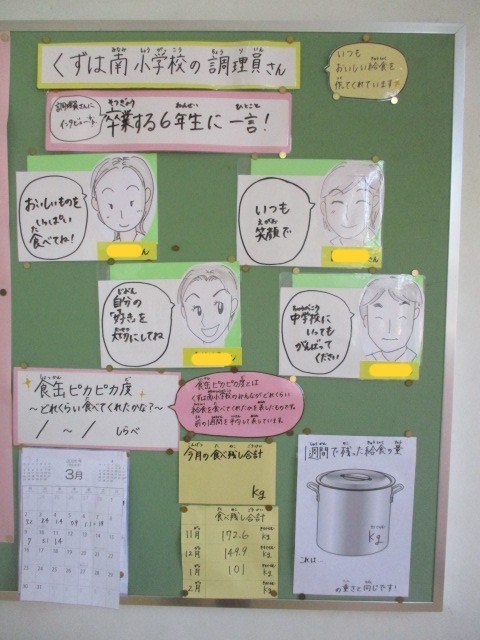 くずは南小学校の調理員さん
いつも
おいしい給食を
作ってくれています
調理員さんに
インタビュー
卒業する6年生に一言!
おいしいものを
いっぱい
食べてね!
ん
いつも
笑顔で
さん
自分の
「好き」を
大切にしてね
中学校に
いっても
がんばって
ください
食缶ピカピカ度
~どれくらい食べてくれたかな?~
/ ~ / しらべ
食缶ピカピカ度とは
くずは南小学校のみんながどれくらい
給食を食べてくれたかを表したものです。
前の1週間を平均して表しています。
3月
今月の食べ残し合計
kg
食べ残し合計
11月 172.6 kg
12月 149.9 kg
1月 101 kg
2月 kg
1週間で残った給食の量
kg
これは
の重さと同じです!